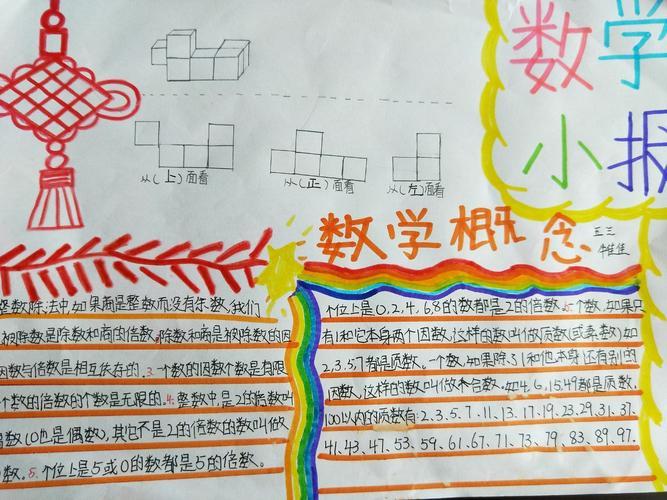 数学
小报
从(上)面看
从(正)面看
从(左)面看
数学概念
五三
整数除法中,如果商是整数而没有余数,我们
被除数是除数和商的倍数,除数和商是被除数的因
因数与倍数是相互依存的.3.一个数的因数个数是有限
个数的倍数的个数是无限的.4.整数中,是2的倍数叫
数(0也是偶数),其它不是2的倍数的数叫做
数.5.个位上是5或0的数都是5的倍数。
个位上是0,2,4,6,8的数都是2的倍数.5.个数,如果只
有1和它本身两个因数,这样的数叫做质数(或素数)如
2,3.5.7都是质数。一个数,如果除了1和他本身还有别的
因数,这样的数叫做木合数。如4.6.15.49都是质数,
100以内的质数有:2.3.5.7.11.13.17.19.23.29.31.37.
41.43.47.53.59.61.67.71.73.79.83.89.97.